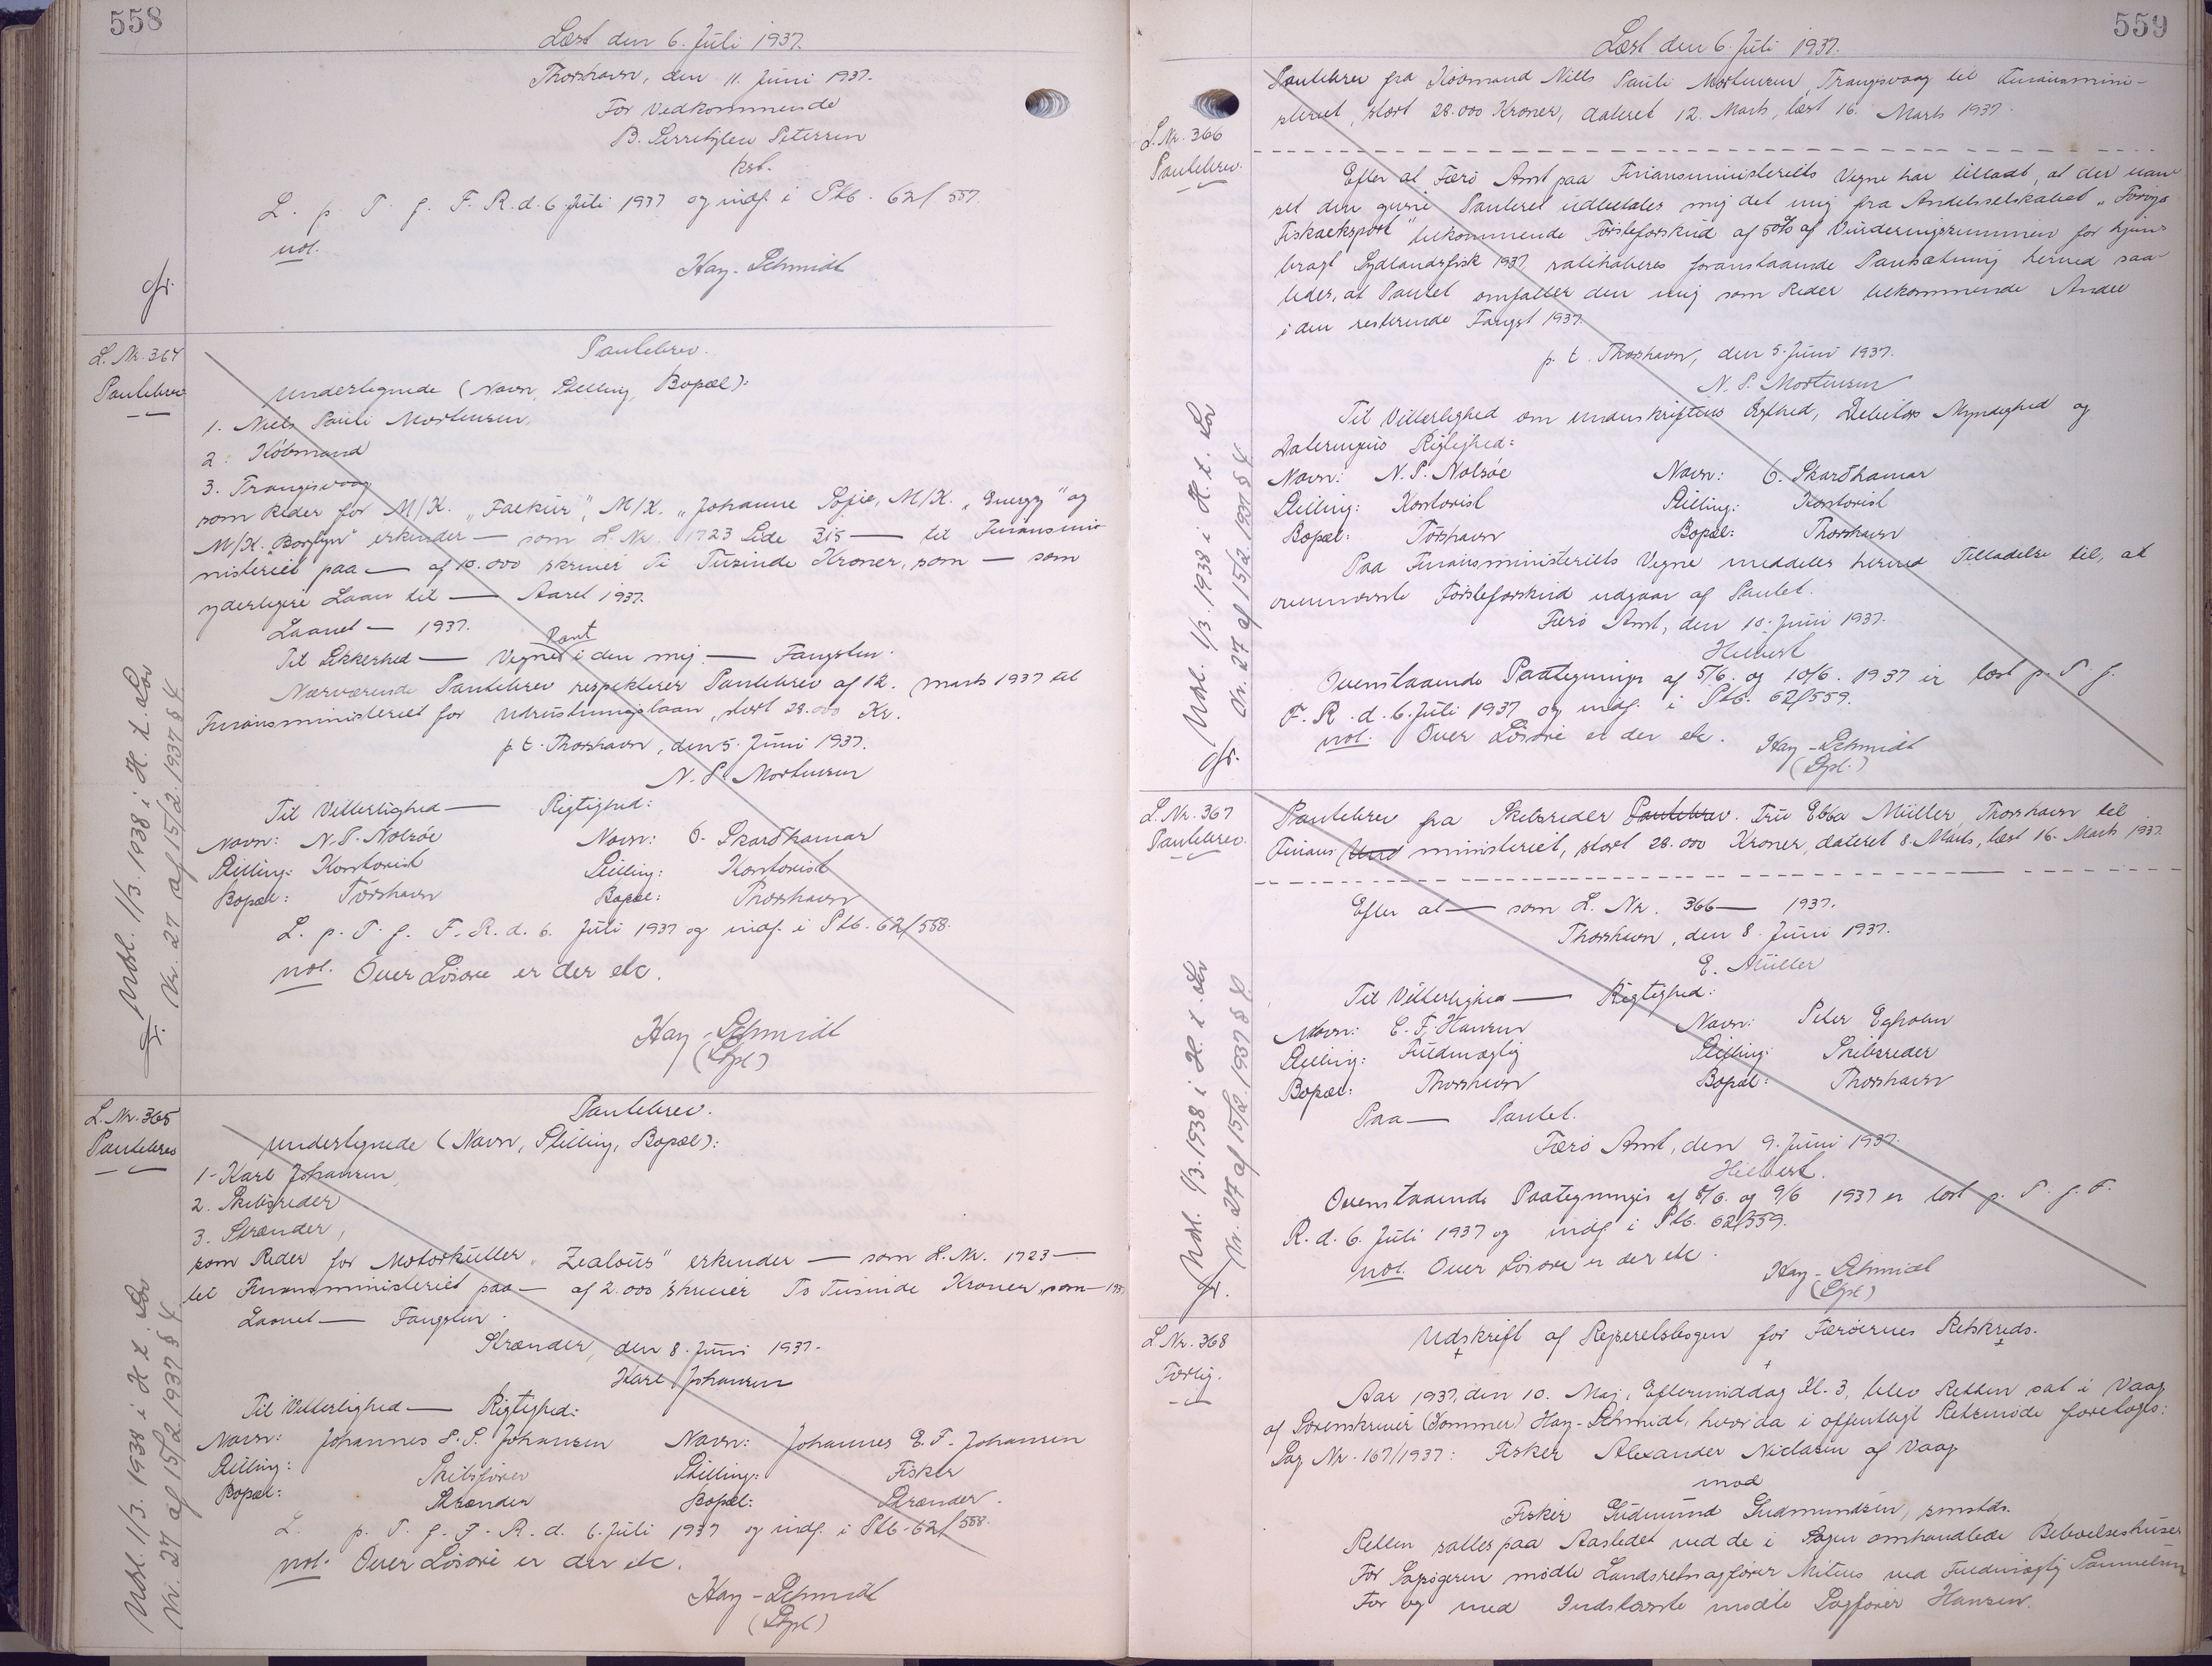 558
Læst den 6. Juli 1937.
Thorshavn, den 11. Juni 1937.
For Vedkommende
B. Petersen
kst.
L. p. T. f. F. R. d. 6 Juli 1937 og indf. i Ptb. 62/557.
not.
Hay-Schmidt
L. Nr. 364
Pantebrev
Pantebrev.
Undertegnede (Navn, Stilling, Bopæl):
1. Niels Pauli Mortensen,
2. Købmand
3. Trangisvaag
som Reder for M/K. „Falkur", M/K. „Johanne Sofie, M/K. „Energy" og
M/K. erkender — som L. Nr. 1723 Side 315 — til Finansmi-
nisteriet paa — af 10.000 skriver Ti Tusinde Kroner, som — som
yderligere Laan til — Aaret 1937.
Laanet — 1937.
Pant
Til Sikkerhed — Vegne i den mig — Fangsten.
Nærværende Pantebrev respekterer Pantebrev af 12. Marts 1937 til
Finansministeriet for Udrustningslaan, stort 28.000 Kr.
p. t. Thorshavn, den 5. Juni 1937.
N. P. Mortensen
Til Vitterlighed — Rigtighed:
Navn: N. P. Nolsøe Navn: O. Skarðhamar
Stilling: Kontorist Stilling: Kontorist
Bopæl: Tórshavn Bopæl: Thorshavn
L. p. T. f. F. R. d. 6. Juli 1937 og indf. i Ptb. 62/558.
not. Over Løsøre er der etc.
Hay-Schmidt
(Spl.)
Udsl. 1/3. 1938 i H. t. Lov
Nr. 27 af 15/2. 1937 § 4
L. Nr. 365
Pantebrev
Pantebrev.
Undertegnede (Navn, Stilling, Bopæl):
1. Karl Johansen,
2. Skibsreder
3. Strænder,
som Reder for Motorkutter „Zealous" erkender — som L. Nr. 1723 —
til Finansministeriet paa — af 2.000 skriver To Tusinde Kroner, som — 1937.
Laanet — Fangsten.
Strænder, den 8. Juni 1937.
Karl Johansen
Til Vitterlighed — Rigtighed:
Navn: Johannes S. P. Johansen Navn: Johannes E. F. Johansen
Stilling: Skibsfører Stilling: Fisker
Bopæl: Strænder Bopæl: Strænder.
L. p. T. f. F. R. d. 6. Juli 1937 og indf. i Ptb. 62/558.
not. Over Løsøre er der etc.
Hay-Schmidt
(Spl.)
Udsl. 1/3. 1938 i H. t. Lov
Nr. 27 af 15/2 1937 § 4
559
Læst den 6. Juli 1937.
L. Nr. 366
Pantebrev.
Pantebrev fra Købmand Niels Pauli Mortensen, Trangisvaag til Finansmini-
steriet, stort 28.000 Kroner, dateret 12. Marts, læst 16. Marts 1937.
Efter at Færø Amt paa Finansministeriets Vegne har tilladt, at der uan-
set den givne Panteret udbetales mig det mig fra Andelsselskabet „Føroya
Fiskaeksport" tilkommende Førsteforskud af 50% af Vurderingssummen for hjem-
bragt Sydlandsfisk 1937 ratihaberes foranstaaende Pantsætning herved saa-
ledes, at Pantet omfatter den mig som Reder tilkommende Andel
i den resterende Fangst 1937.
p. t. Thorshavn, den 5. Juni 1937.
N. P. Mortensen
Til Vitterlighed om Underskriftens Ægthed, Debitors Myndighed og
Dateringens Rigtighed:
Navn: N. P. Nolsøe Navn: O. Skarðhamar
Stilling: Kontorist Stilling: Kontorist
Bopæl: Tórshavn Bopæl: Thorshavn
Paa Finansministeriets Vegne meddeles herved Tilladelse til, at
ovennævnte Førsteforskud udgaar af Pantet.
Færø Amt, den 10. Juni 1937.
Hilbert
Ovenstaaende Paategninger af 5/6. og 10/6. 1937 er læst p. T. f.
F. R. d. 6. Juli 1937 og indf. i Ptb. 62/559.
not. Over Løsøre er der etc. Hay-Schmidt
(Spl.)
Udsl. 1/3. 1938 i H. t. Lov
Nr. 27 af 15/2. 1937 § 4
L. Nr. 367
Pantebrev.
Pantebrev fra Skibsreder Pantebrev. Fru Ebba Müller, Thorshavn til
Finans ministeriet, stort 28.000 Kroner, dateret 8. Marts, læst 16. Marts 1937.
Efter at — som L. Nr. 366 — 1937.
Thorshavn, den 8. Juni 1937.
E. Müller
Til Vitterlighed — Rigtighed:
Navn: C. F. Hansen Navn: Peter Egholm
Stilling: Fuldmægtig Stilling: Skibsreder
Bopæl: Thorshavn Bopæl: Thorshavn
Paa — Pantet.
Færø Amt, den 9. Juni 1937.
Hilbert.
Ovenstaaende Paategninger af 8/6. og 9/6 1937 er læst p. T. f. F.
R. d. 6. Juli 1937 og indf. i Ptb. 62/559.
not. Over Løsøre er der etc. Hay-Schmidt
(Spl.)
Udsl. 1/3. 1938 i H. t. Lov
Nr. 27 af 15/2. 1937 § 4
L. Nr. 368
Forlig.
Udskrift af for Færøernes Retskreds.
Aar 1937, den 10. Maj, Eftermiddag Kl. 3, blev Retten sat i Vaag
af Sorenskriver (Dommer) Hay-Schmidt, hvor da i offentligt Retsmøde foretoges:
Sag Nr. 167/1937: Fisker Alexander Niclasen af Vaag
mod
Fisker Gudmund Gudmundsen, smstds.
Retten sattes paa Aastedet ved de i Sagen omhandlede Beboelseshuse
For Sagsøgeren mødte Landsretssagfører Mitens ved Fuldmægtig Samuelsen
For og med Indstævnte mødte Sagfører Hansen.